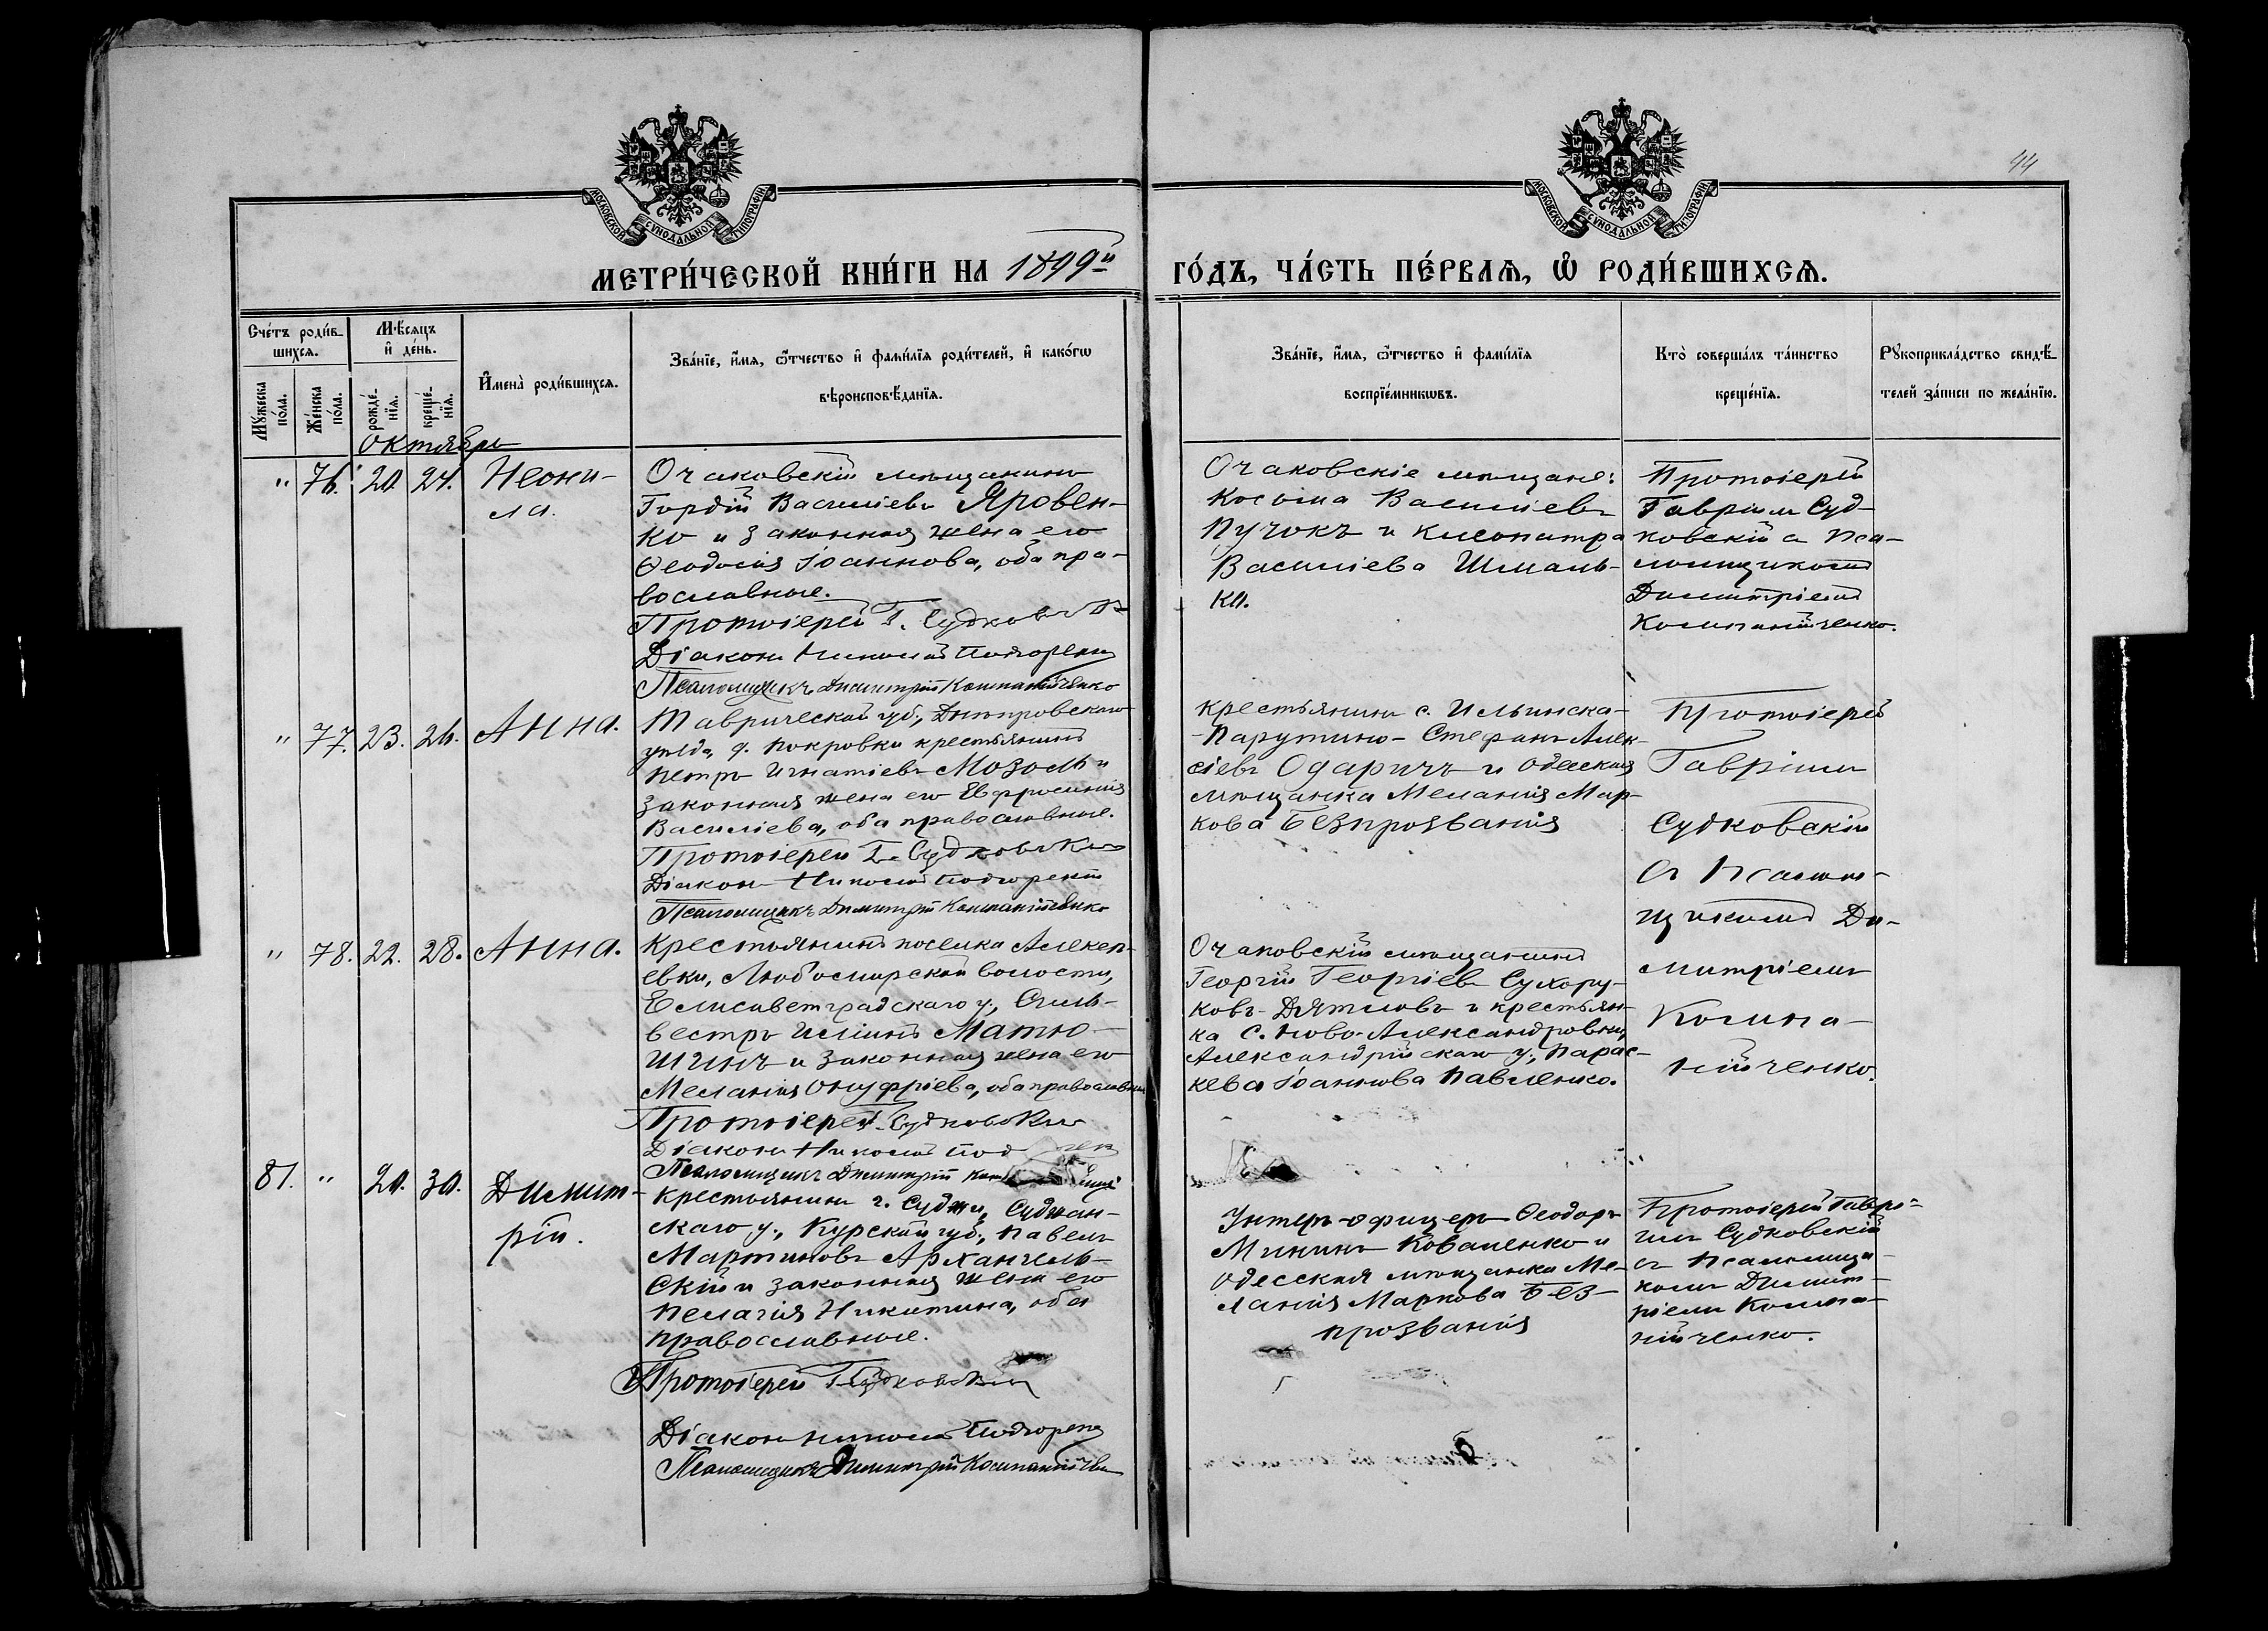 44
МОСКОВСКОЙ СУНОДАЛЬНОЙ ТИПОГРАФІИ
МОСКОВСКОЙ СУНОДАЛЬНОЙ ТИПОГРАФІИ
МЕТРИ́ЧЕСКОЙ КНИ́ГИ НА 1899й ГО́ДЪ, ЧА́СТЬ ПЕ́РВАѦ, Ѡ҆ РОДИ́ВШИХСѦ.
Сче́тъ роди́в-
шихсѧ.
Мꙋ́жеска по́ла.
Же́нска по́ла.
Мѣ́сѧцъ
и҆ де́нь.
рожде́-
нїѧ.
креще́-
нїѧ.
И҆мена̀ роди́вшихсѧ.
Зва́нїе, и҆́мѧ, ѻ҆́тчество и҆ фами́лїѧ роди́телей, и҆ како́гѡ
вѣроисповѣ́данїѧ.
Зва́нїе, и҆́мѧ, ѻ҆́тчество и҆ фами́лїѧ
воспрїе́мникѡвъ.
Кто̀ соверша́лъ та́инство
креще́нїѧ.
Рꙋкоприкла́дство свидѣ́-
телей за́писи по жела́нїю.
Октябрь
" 76. 20. 24. Неони-
ла.
Очаковскій мѣщанинъ
Гордій Васильевъ Яровен-
ко и законная жена его
Ѳеодосія Іоаннова, оба пра-
вославные.
Протоіерей Г. Судковскій
Діаконъ Николай Подгорецъ
Псаломщикъ Димитрій Компанійченко
Очаковскіе мѣщане:
Косьма Васильевъ
Пучокъ и Клеопатра
Васильева Шмаль-
ко.
Протоіерей
Гавріилъ Суд-
ковскій съ Пса-
ломщикомъ
Димитріемъ
Компанійченко.
" 77. 23. 26. Анна.
Таврической губ., Днѣпровскаго
уѣзда, д. Покровки крестьянинъ
Петръ Игнатіевъ Мозоль и
законная жена его Евфросинія
Васильева, оба православные.
Протоіерей Г. Судковскій
Діаконъ Николай Подгорецъ
Псаломщикъ Димитрій Компанійченко
Крестьянинъ с. Ильинска-
-Парутино- Стефанъ Алек-
сіевъ Одаричъ и Одесская
мѣщанка Меланія Мар-
кова Безпрозванія
Протоіерей
Гавріилъ
Судковскій
съ Псалом-
щикомъ Ди-
митріемъ
Компа-
нійченко.
" 78. 22. 28. Анна.
Крестьянинъ поселка Алексе-
евки, Любомирской волости,
Елисаветградскаго у., Силь-
вестръ Иліинъ Матю-
шинъ и законная жена его
Меланія Онуфріева, оба православные
Протоіерей Г. Судковскій
Діаконъ Николай
Псаломщикъ Димитрій
Очаковскій мѣщанинъ
Георгій Георгіевъ Сухору-
ковъ-Дятловъ и крестьян-
ка с. Ново-Александровки,
Александрійскаго у., Парас-
кева Іоаннова Павленко.
81. " 20. 30. Димит-
рій.
Крестьянинъ г. Суджи, Суджан-
скаго у., Курской губ., Павелъ
Мартиновъ Архангель-
скій и законная жена его
Пелагія Никитина, оба
православные.
Протоіерей Г. Судковскій
Діаконъ Николай Подгорецъ
Псаломщикъ Димитрій Компанійченко
Унтеръ-офицеръ Ѳеодоръ
Мининъ Коваленко и
Одесская мѣщанка Ме-
ланія Маркова Без-
прозванія
Протоіерей Гаврі-
илъ Судковскій
съ Псаломщи-
комъ Димит-
ріемъ Компа-
нійченко.